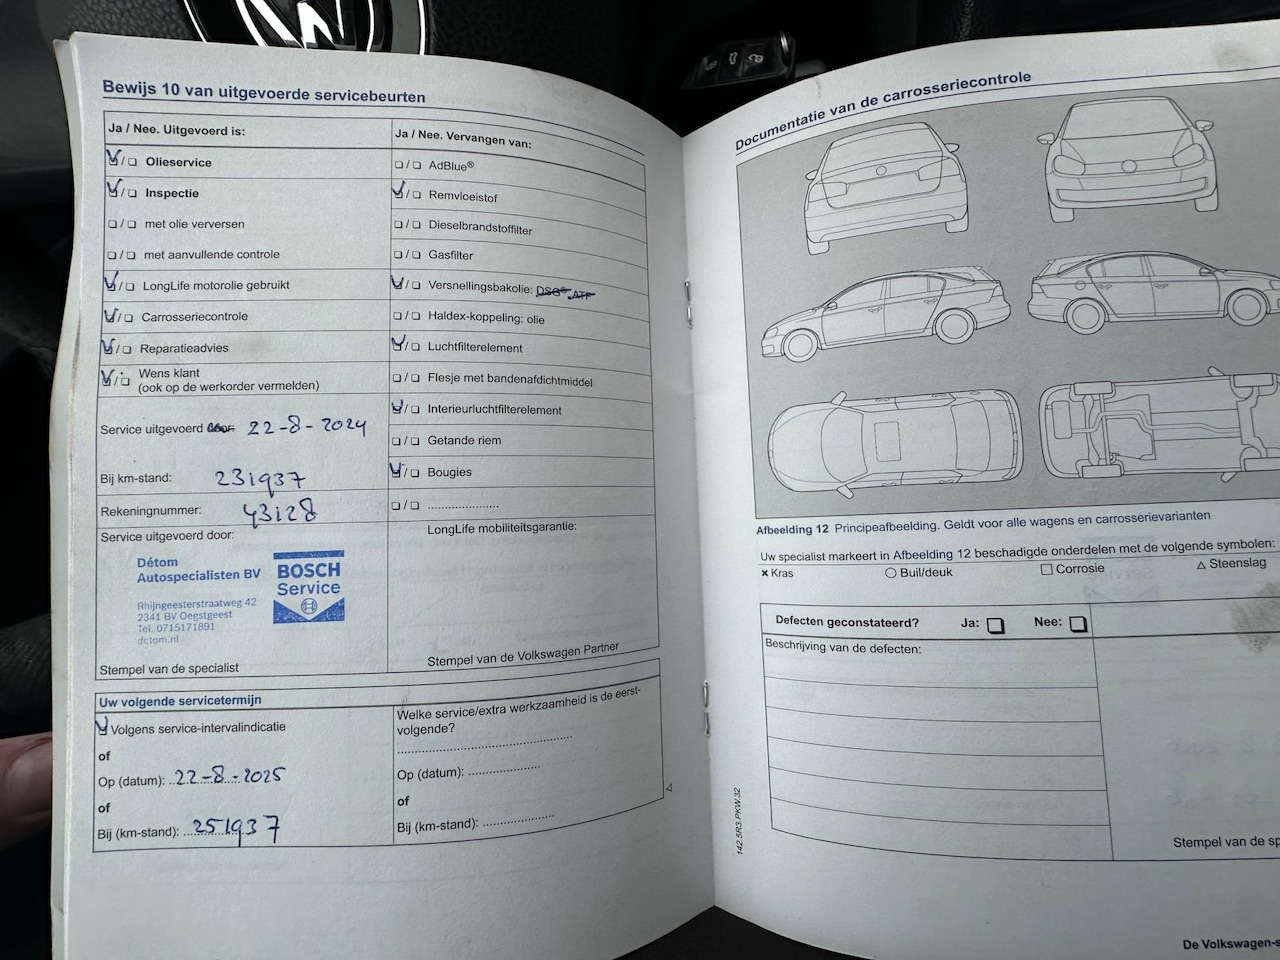 Bewijs 10 van uitgevoerde servicebeurten
Ja / Nee. Uitgevoerd is:
Olieservice
Inspectie
met olie verversen
met aanvullende controle
LongLife motorolie gebruikt
Carrosseriecontrole
Reparatieadvies
Wens klant
(ook op de werkorder vermelden)
Service uitgevoerd door 22-8-2024
Bij km-stand: 231937
Rekeningnummer: 43128
Service uitgevoerd door:
Détom
Autospecialisten BV
Rhijngeesterstraatweg 42
2341 BV Oegstgeest
Tel. 0715171891
detom.nl
BOSCH
Service
Stempel van de specialist
Ja / Nee. Vervangen van:
AdBlue®
Remvloeistof
Dieselbrandstoffilter
Gasfilter
Versnellingsbakolie: DSG®, ATF
Haldex-koppeling: olie
Luchtfilterelement
Flesje met bandenafdichtmiddel
Interieurluchtfilterelement
Getande riem
Bougies
....................
LongLife mobiliteitsgarantie:
Stempel van de Volkswagen Partner
Uw volgende servicetermijn
Volgens service-intervalindicatie
of
Op (datum): 22-8-2025
of
Bij (km-stand): 251937
Welke service/extra werkzaamheid is de eerst-
volgende?
Op (datum): ....................
of
Bij (km-stand): ....................
Documentatie van de carrosseriecontrole
Afbeelding 12 Principeafbeelding. Geldt voor alle wagens en carrosserievarianten
Uw specialist markeert in Afbeelding 12 beschadigde onderdelen met de volgende symbolen:
× Kras ○ Buil/deuk □ Corrosie △ Steenslag
Defecten geconstateerd? Ja: Nee:
Beschrijving van de defecten:
Stempel van de sp
142.5R3.PKW.32
De Volkswagen-s